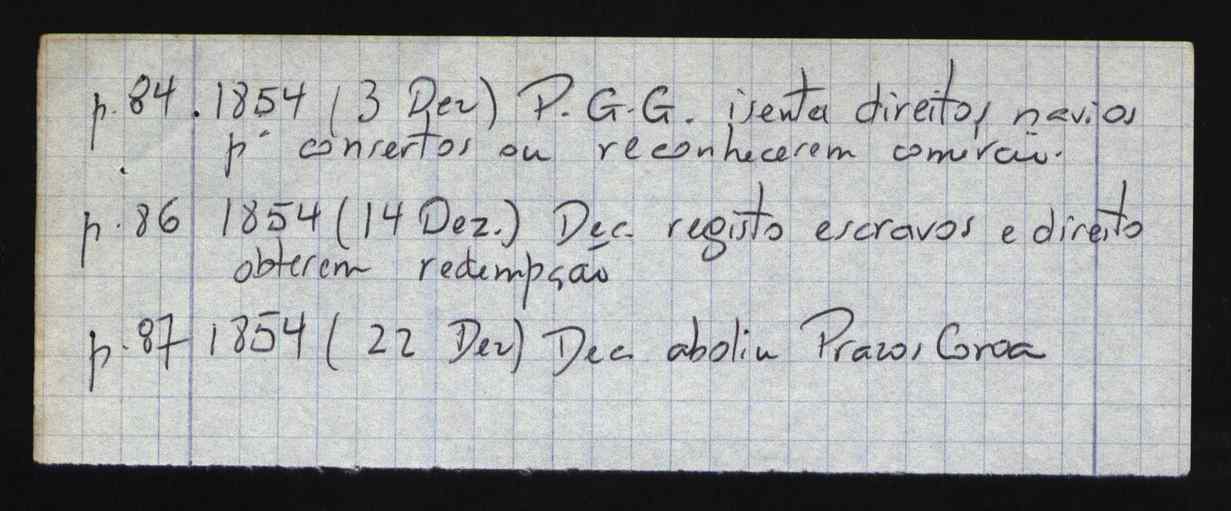 p. 84. 1854 (3 Dez) P. G. G. isenta direitos navios
pª consertos ou reconhecerem comércio.
p. 86 1854 (14 Dez.) Dec. registo escravos e direito
obterem redempção
p. 87 1854 (22 Dez) Dec. aboliu Prazos Coroa